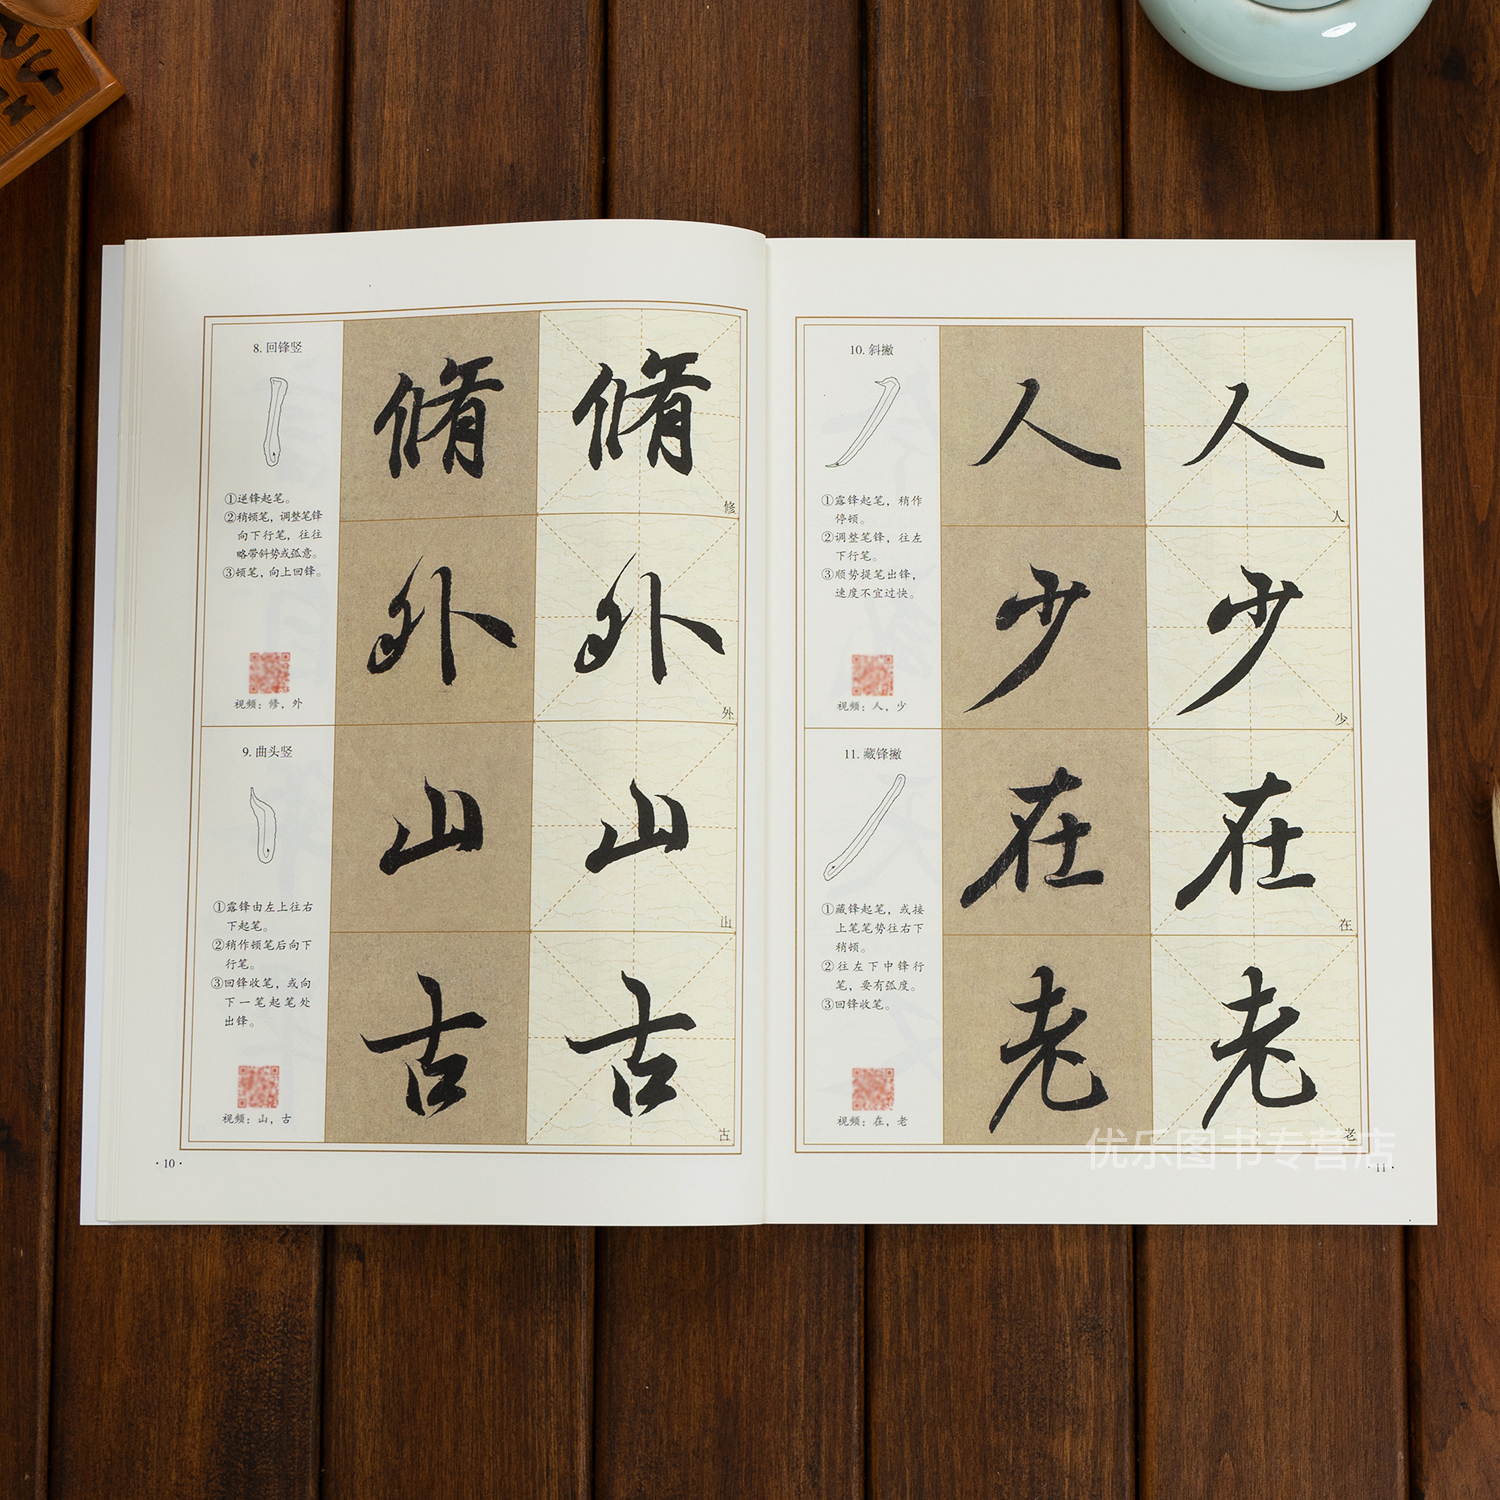 8. 回锋竖
①逆锋起笔。
②稍顿笔，调整笔锋
向下行笔，往往
略带斜势或弧意。
③顿笔，向上回锋。
视频：修，外
脩
脩
修
外
外
外
9. 曲头竖
①露锋由左上往右
下起笔。
②稍作顿笔后向下
行笔。
③回锋收笔，或向
下一笔起笔处
出锋。
视频：山，古
山
山
山
古
古
古
·10·
10. 斜撇
①露锋起笔，稍作
停顿。
②调整笔锋，往左
下行笔。
③顺势提笔出锋，
速度不宜过快。
视频：人，少
人
人
人
少
少
少
11. 藏锋撇
①藏锋起笔，或接
上笔笔势往右下
稍顿。
②往左下中锋行
笔，要有弧度。
③回锋收笔。
视频：在，老
在
在
在
老
老
老
11·
优乐图书专营店